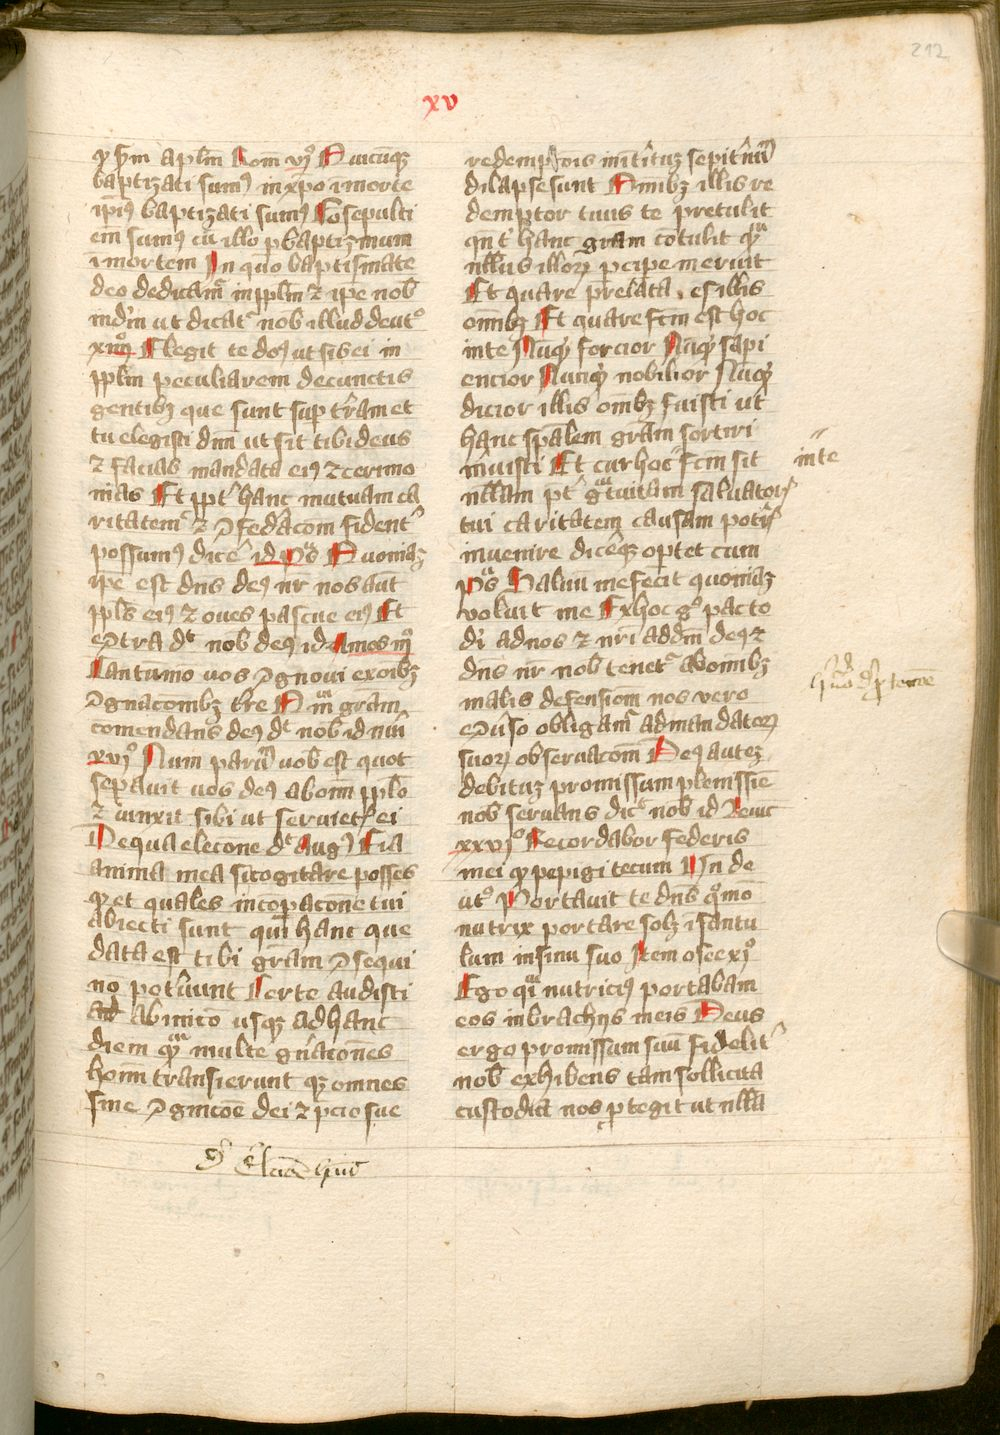 212
xv
q̄ ẜm aplm̄ Rom̄ vjº Quicūqꝫ
baptizati sumꝰ in xp̄o i morte
ip̄iꝰ baptizati sumꝰ Cōsepulti
em̄ sumꝰ cū illo ꝑ baptizmum
ī mortem In quo baptismate
deo dedicam̄ in ppl̄m ⁊ ip̄e nob̄
ut dicat̄ nob̄ illud deutº
xiiijº Elegit te dn̄s ut sis ei in
ppl̄m peculiarem de cunctis
gentibꝫ que sunt sup̄ t̄ram et
tu elegisti dn̄m ut sit tibi deus
⁊ facias mandata eiꝰ ⁊ cerimo
nias Et ppt̄ hanc mutuam ca
ritatem ⁊ ꝯfed̄acōm fident̄
possumꝰ dicē id pˢ Quoniaꝫ
ip̄e est dn̄s deꝰ nr̄ nos aūt
ppl̄s eiꝰ ⁊ oues pascue eiꝰ Et
eꝯtra dt̄ nob̄ deꝰ id Amos iijº
Tantumo vos ꝯgnoui ex oībꝫ
ꝯgnacōnibꝫ t̄re Qm̄ gram̄
comendans deꝰ dt̄ nob̄ id nūi
xvjº Num parū vob̄ est quot
sepauit vos deꝰ ab om̄i pplō
⁊ iunxit sibi ut seruiret̄ ei
De qua elecōne dt̄ Augꝰ Eia
anima mea si cogitare posses
q̄t et quales in cōpacōne tui
abiecti sunt qui hanc que
data est tibi gr̄am ꝯsequi
nō pot̄uunt Certe audisti
ab inicio usqꝫ ad hanc
diem q̄ multe gn̄acōnes
hom̄ transierunt qꝫ omnes
sine ꝯgnicōe dei ⁊ p̄cio sue
redempcōis in int̄ituꝫ sepit̄nū
dilapse sunt Om̄ibꝫ illis re
demptor tuus te pretulit
qn̄ t̄ hanc gram̄ cōtulit q̄
nllus illorꝫ pcipe meruit
Et quare prelata es illis
om̄ibꝫ Et quare fcm̄ est hoc
in te Nūqͥ forcior Nūqͥ sapi
encior Nunqͥ nobilior Nūqͥ
dicior illis om̄ibꝫ fuisti ut
hanc sp̄alem gram̄ sortiri
m̄uisti Et cur hoc fcm̄ sit
in te
nllam pt̄ gtuitam saluatorꝭ
tui caritatem causam potꝭ
inuenire dicēqꝫ optet cum
pˢ Saluū me fecit quoniaꝫ
voluit me Ex hoc gº pacto
di ad nos ⁊ nr̄i ad dm̄ deꝰ ⁊
dn̄s nr̄ nob̄ tenet̄ ab om̄ibꝫ
malis defensiom̄ nos vero
eꝯūso obligam̄ ad mandatorꝫ
suorꝫ obseruacōm Deꝰ auteꝫ
debituꝫ promissum plenissīe
nob̄ seruans dic̄ nob̄ id Leuit̄
xxvjº Recordabor federis
mei q̄ pepigi tecum Un̄ de
utº Portauit te dn̄s qͦmō
nutrix portare solꝫ ifantu
lum in sinu suo Item osee xjº
Ego qͣi nutriciꝰ portabam
eos in brachijs meis Deus
ergo promissum suū fidelit̄
nob̄ exhibens tam sollicita
custodia nos ꝓtegit ut nlla